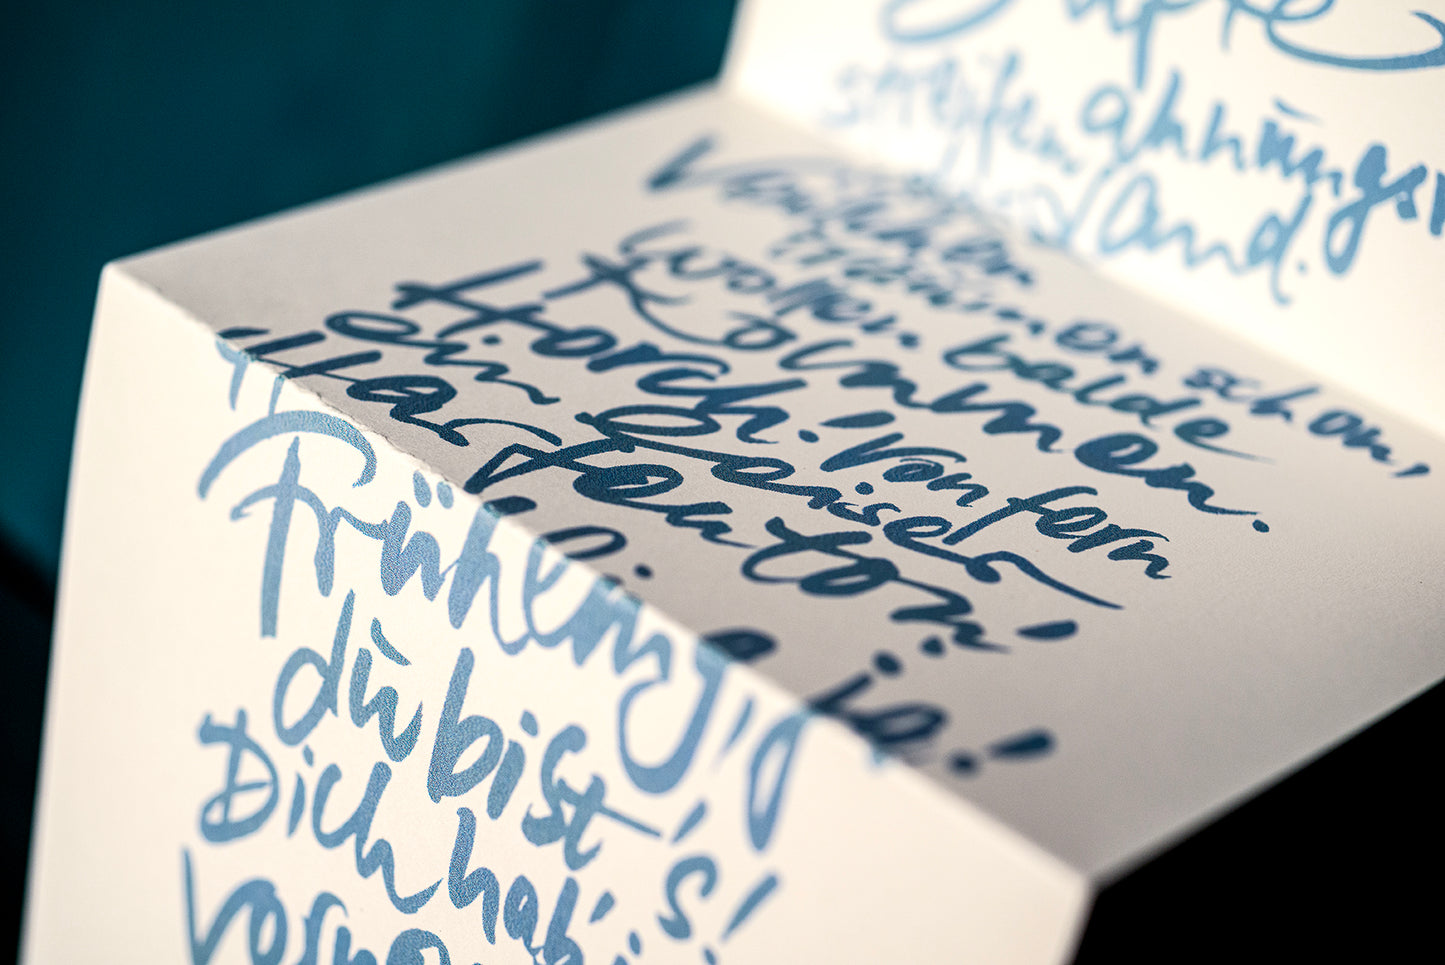 streifen ahnungs
Land.
Veilchen
träumen schon,
wollen balde
Kommen.
Horch! Von fern
ein leiser
Harfenton!
Frühling, ja!
du bist's!
Dich hab'